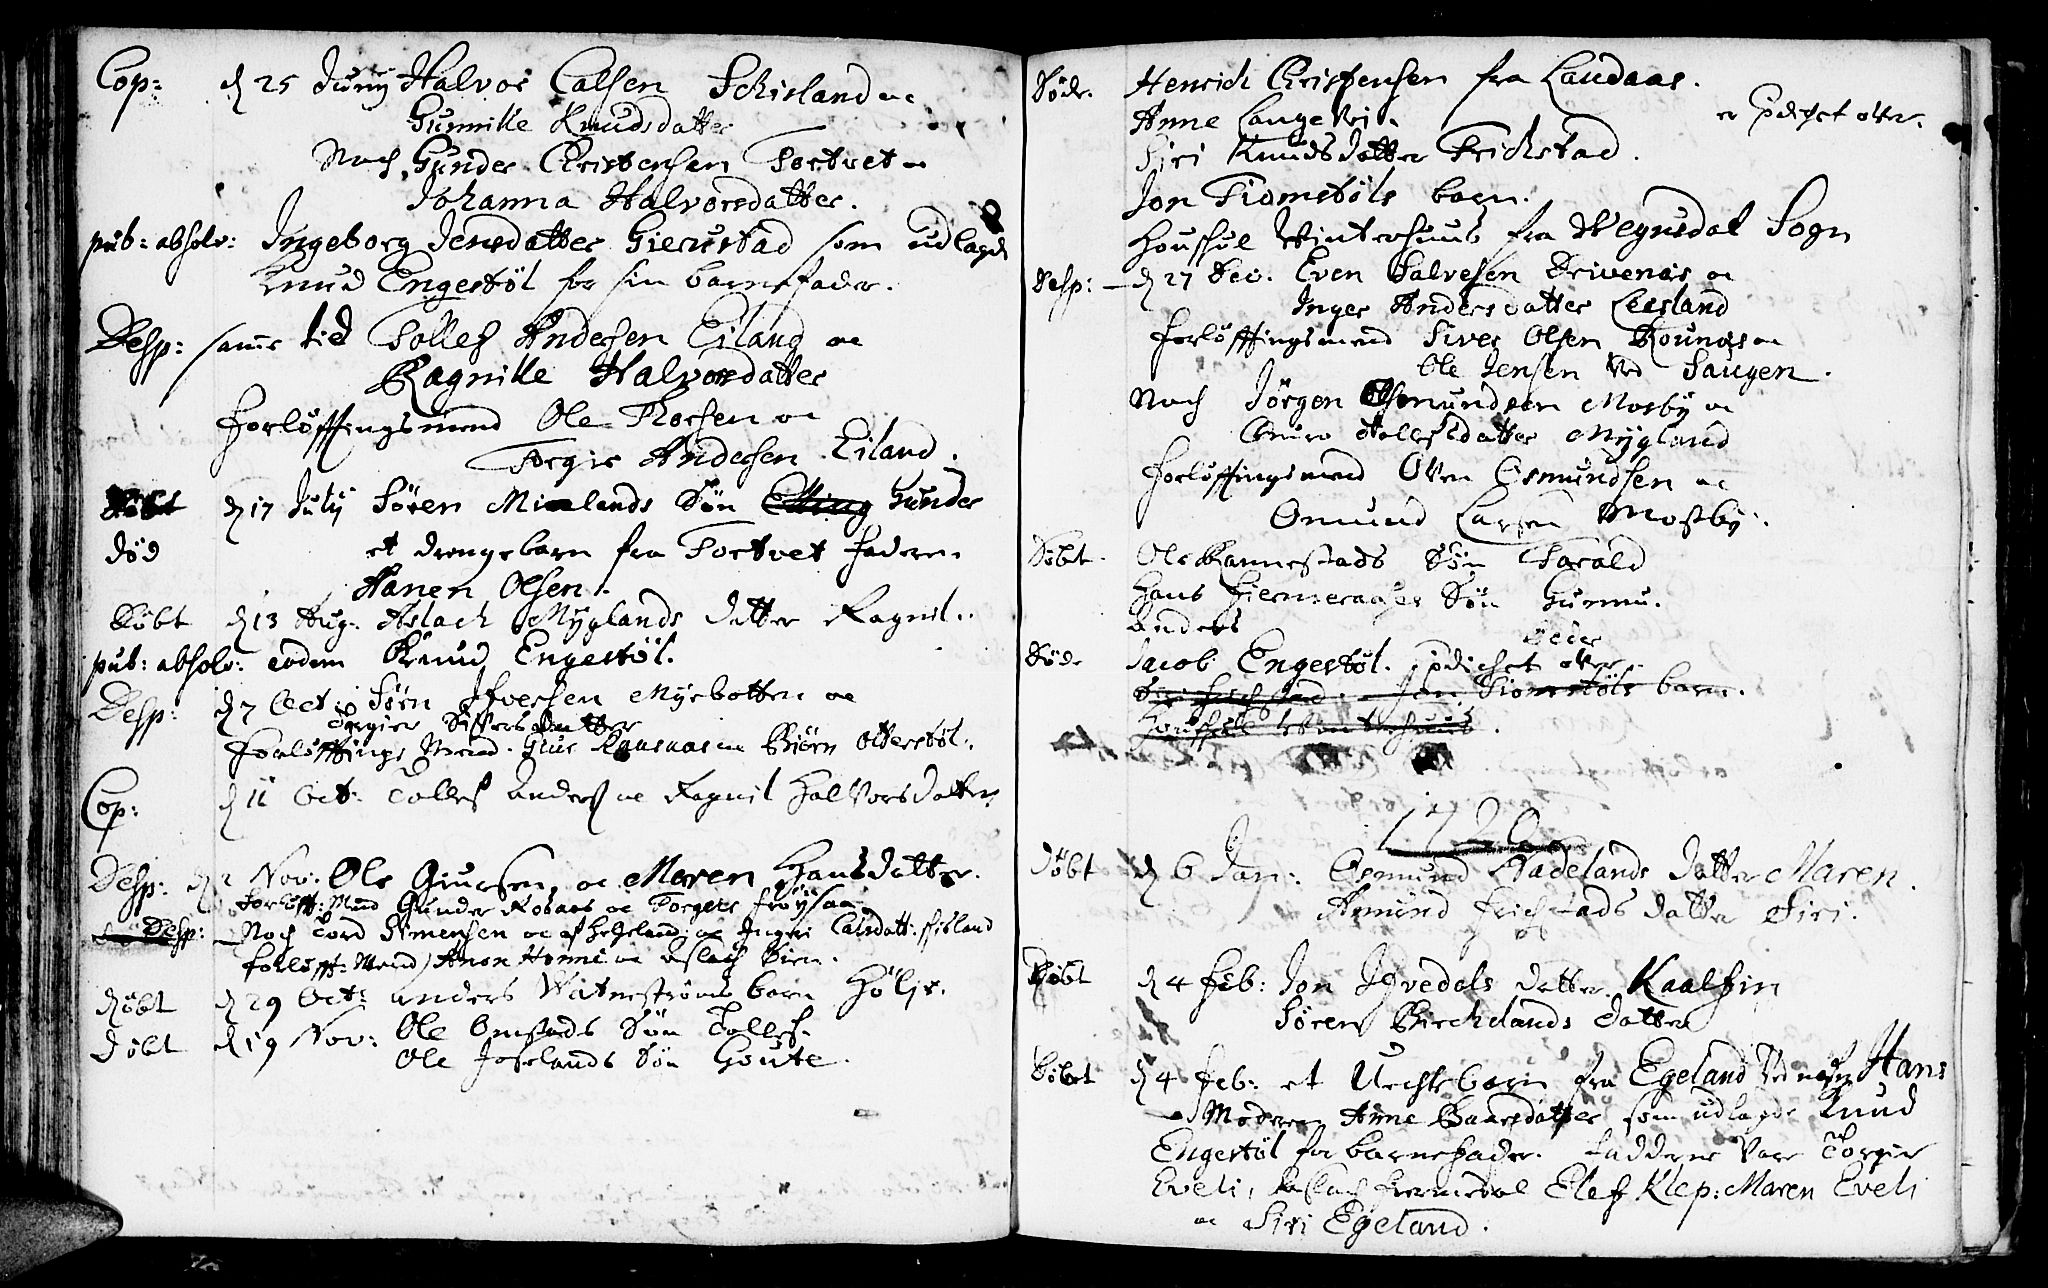 Cop: d 25 Junij Halvor Calsen Schisland oc
Gunnille Knudsdatter
Noch Gunder Christensen Tortvet oc
Johanna Halvorsdatter.
pub: absolv: Ingeborg Jensdatter Gierustad som udlagde
Knud Engestøl for sin barnefader.
Desp: samme tid Tollef Andersen Eiland oc
Ragnille Halvorsdatter
forløffningsmend Ole Thorsen oc
Torgir Andersen Eiland.
Døbt d 17 Julij Søren Mielands Søn Gunder
død et drengebarn fra Tortvet faderen
Hanen Olsen.
Døbt d 13 Aug: Aslach Myglands datter Ragnil.
pub: absolv: eodem Knud Engestøl.
Desp: d 7 Oct: Sørn Ifversen Myrbotten oc
Torgier Sifversdatter
forløffnings Mend. Giur Raasaas oc Biørn Otterstøl.
Cop: d 11 Oct: Tollef Anders oc Ragnil Halvorsdatter
Desp: d 2 Nov: Ole Giursen, oc Maren Hansdatter.
forløfft: Mend Gunder Rosaas oc Torgers Frøysaa
Desp: Noch Tord Simensen oc af Hegeland: oc Inger Calsdatt:
forløfft: Mend Anon Honne oc Aslach Bien.
døbt d 29 Oct: Anders Watnestrøms barn Høljs.
Døbt d 19 Nov: Ole Omstads Søn Tollef.
Ole Joselands Søn Goute.
Døde. Henrich Christensen fra Landaas.
Anne Langetvei. er Prædicket over.
Siri Knudsdatter Frichstad.
Jon Tiomstøls barn.
Houskul Winterhuus fra Wegusdal Sogn
Desp: d 27 Dec: Even Salvesen Drivenes oc
Inger Andersdatter Leesland
forløffningsmend Siver Olsen Rounes oc
Ole Jensen ved Saugen.
Noch Jørgen Osmundsen Mosby oc
Tollefsdatter Mygland
forløffningsmend Oven Osmundsen oc
Omund Larsen Mosby.
Døbt Ole Rannestads Søn Tarald
Hans Søn Gunnu.
Anders Peder
Døde Jacob Engestøl. Prædicket over.
Siri Frichstad. Jon Tiomstøls barn.
Houskul Winterhuus.
1726
døbt d 6 Jan: Osmund Hadelands datter Maren.
Amund Frichstads datter Siri.
Døbt d 4 Feb: Jon Ifvedals datter Kaalfin
Søren Birchelands datter
Døbt d 4 Feb: et Uechte barn fra Egeland ved nafn Hans
Moderen Anne Baarsdatter som udlagde Knud
Engestøl for barnefader. Fadderne Vare Torgier
Eveli, Aslach Elef Klep: Maren Eveli
oc Siri Egeland.